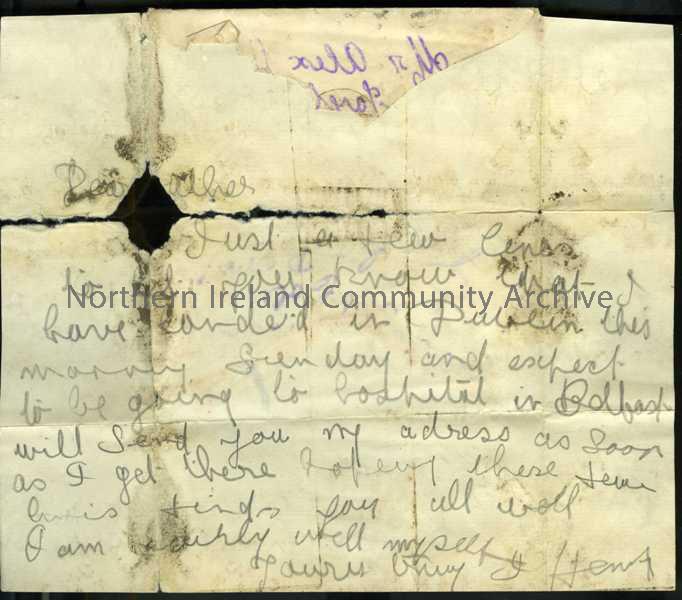 Mr Alex
Dear Father
Just a few lines
to let you know that I
Northern Ireland Community Archive
have landed in Dublin this
morning Sunday and expect
to be going to hospital in Belfast
will send you my adress as soon
as I get there hopeing these few
lines finds you all well
I am fairly well myself
Yours